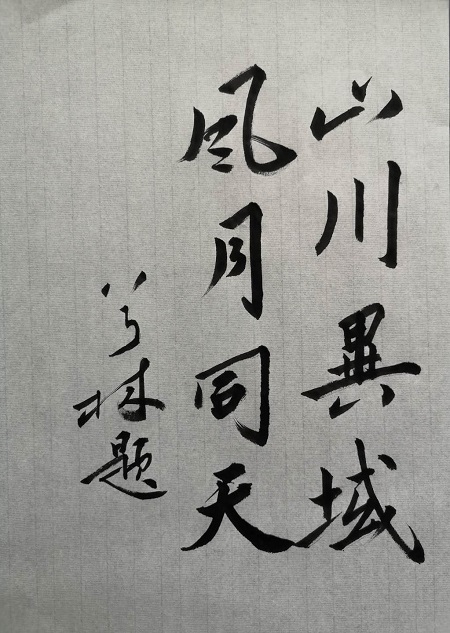 山川異域
風月同天
林題